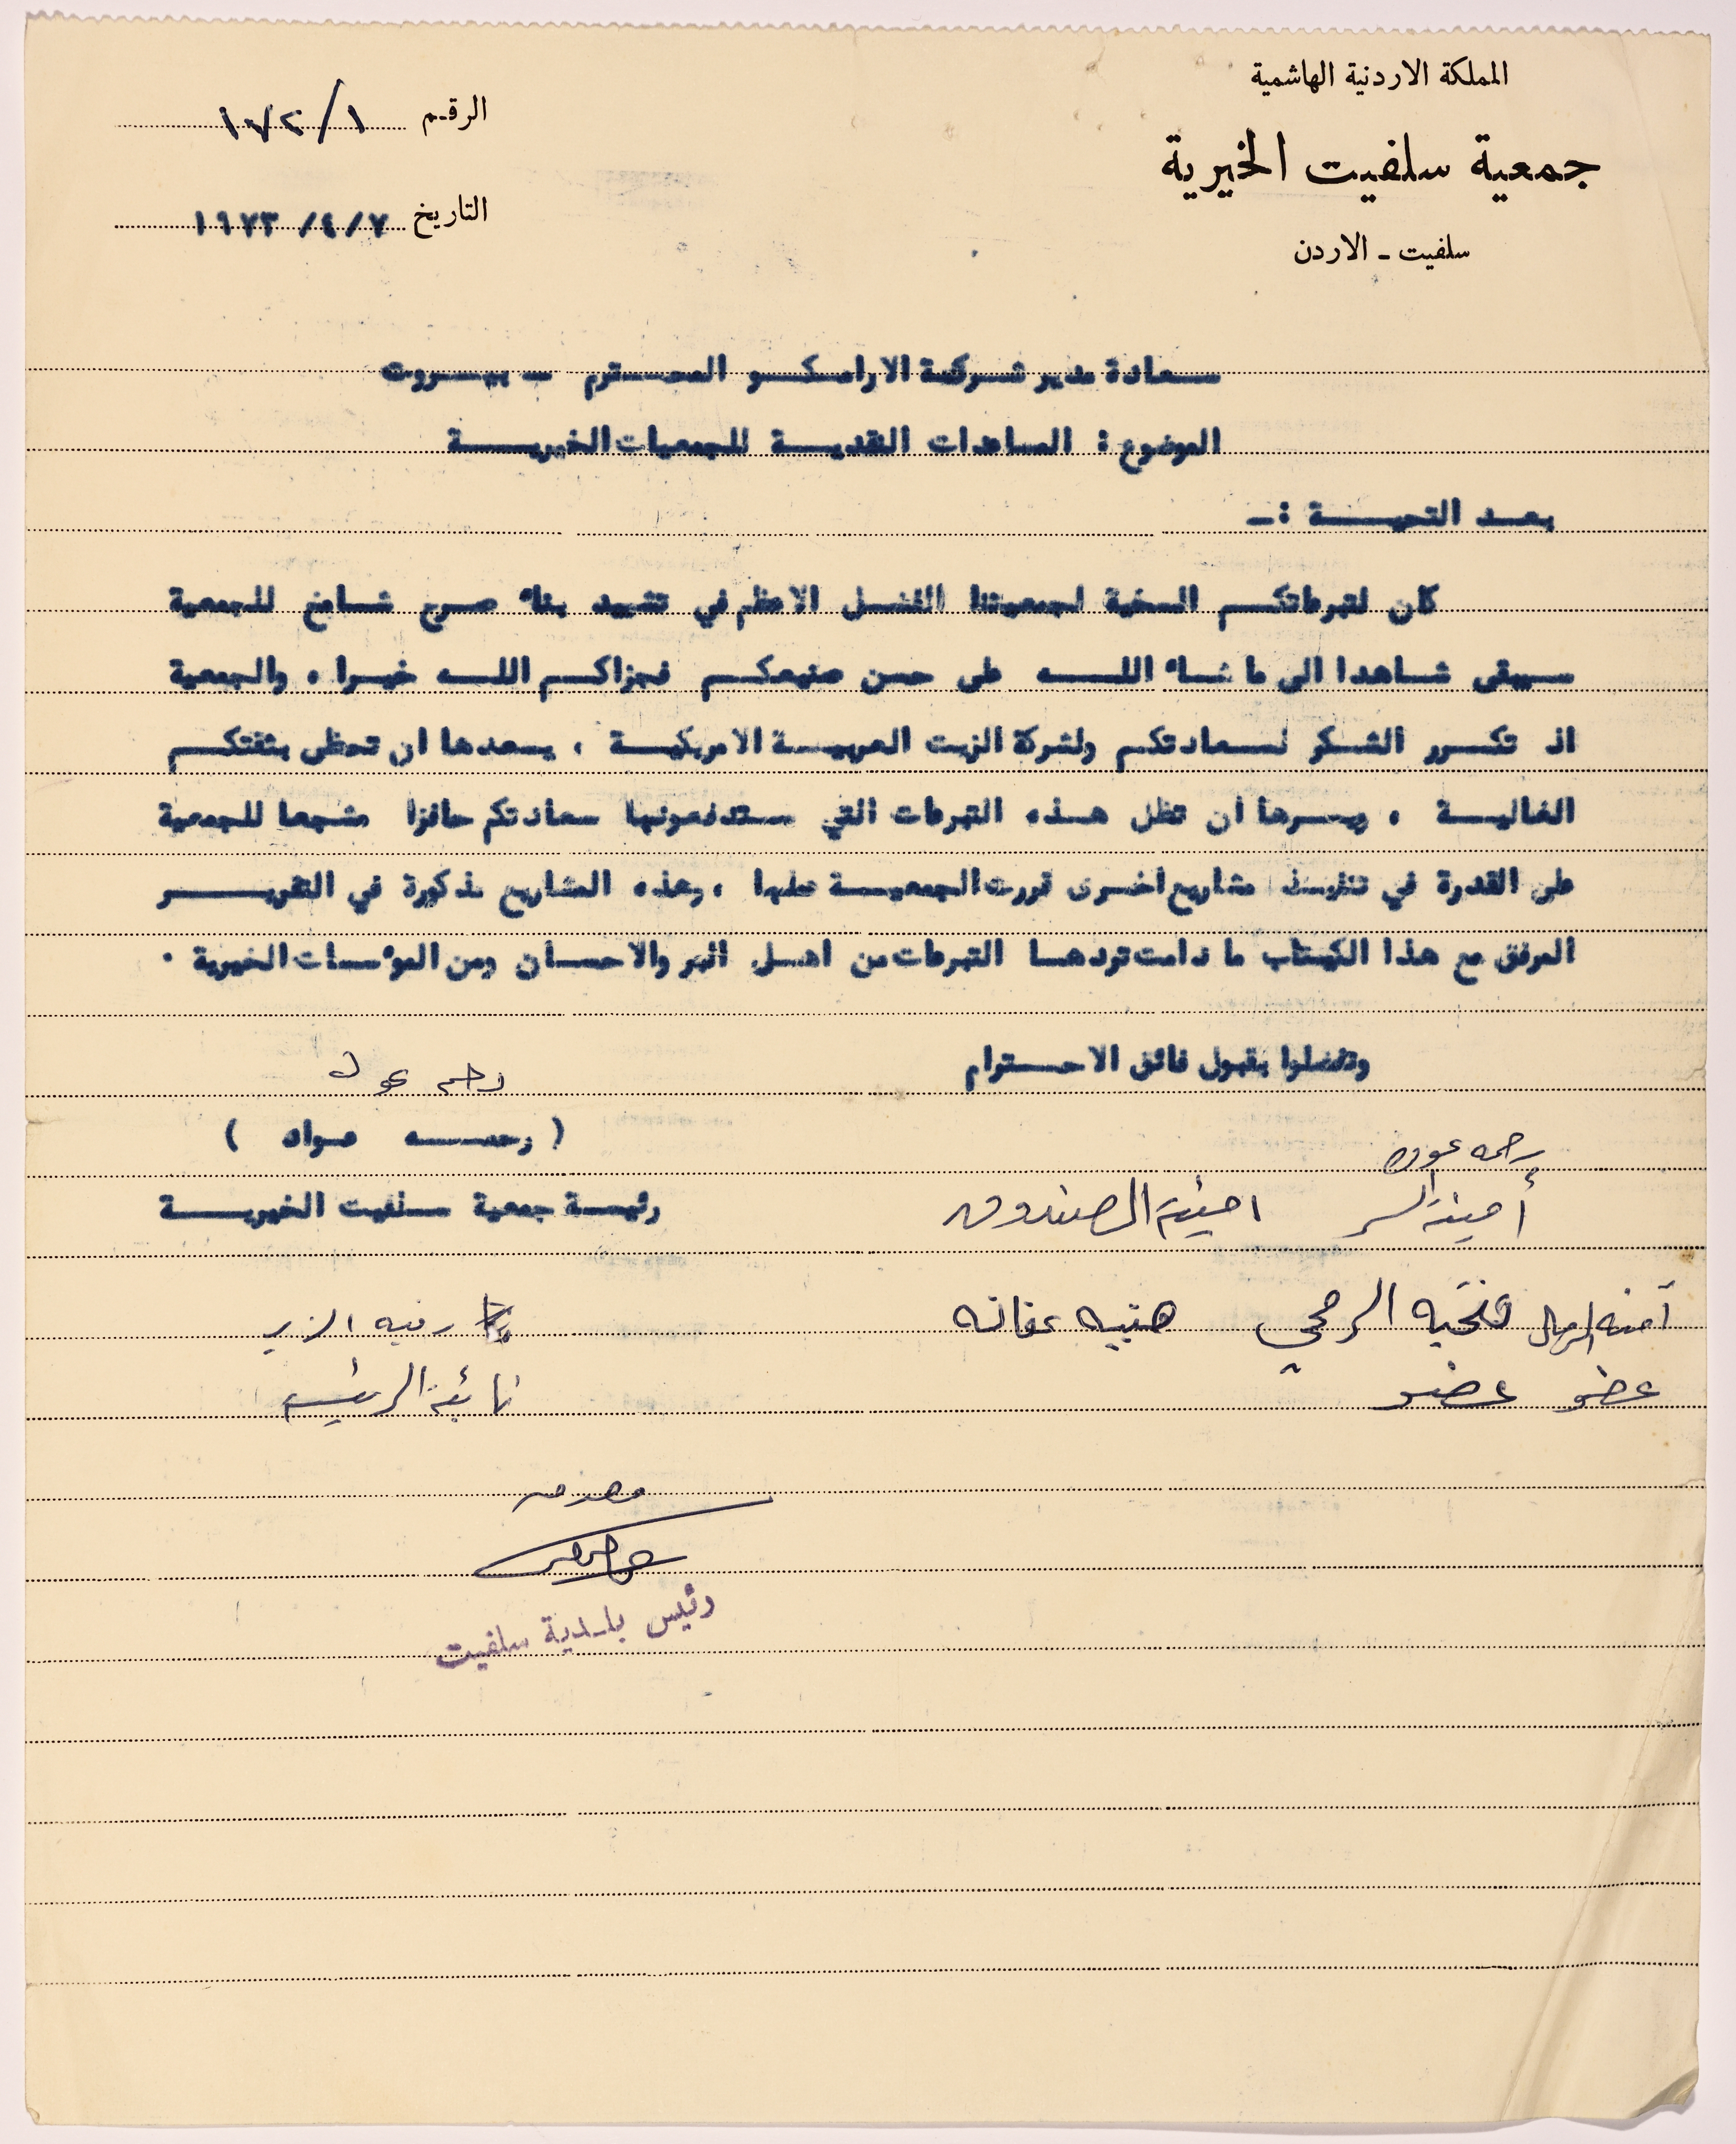 المملكة الاردنية الهاشمية
جمعية سلفيت الخيرية
سلفيت - الاردن
الرقم ١٧٢/١
التاريخ ٧ / ٤ / ١٩٧٣
سعادة مدير شركة الارامكو المحترم - بيروت
الموضوع : المساعدات النقدية للجمعيات الخيرية
بعد التحية :-
كان لتبرعاتكم السخية لجمعيتنا الفضل الاعظم في تشييد بناء صرح شامخ للجمعية
سيبقى شاهدا الى ما شاء الله على حسن صنيعكم فجزاكم الله خيرا . والجمعية
اذ تكرر الشكر لسعادتكم ولشركة الزيت العربية الامريكية ، يسعدها ان تحظى بثقتكم
الغالية . ويسرها ان تظل هذه التبرعات التي ستدفعونها سعادتكم حافزا مشجعا للجمعية
على القدرة في تنفيذ مشاريع اخرى قررت الجمعية عملها ، وهذه المشاريع مذكورة في التقرير
المرفق مع هذا الكتاب ما دامت تردها التبرعات من اهل البر والاحسان ومن المؤسسات الخيرية .
وتفضلوا بقبول فائق الاحترام
( رحمه عواد )
رئيسة جمعية سلفيت الخيرية
أمينة السر امينة الصندوق
آمنه فتحيه الرمحي هنيه عفانه
رفيه الزير
عضو عضو
نائبة الرئيسه
رئيس بلدية سلفيت